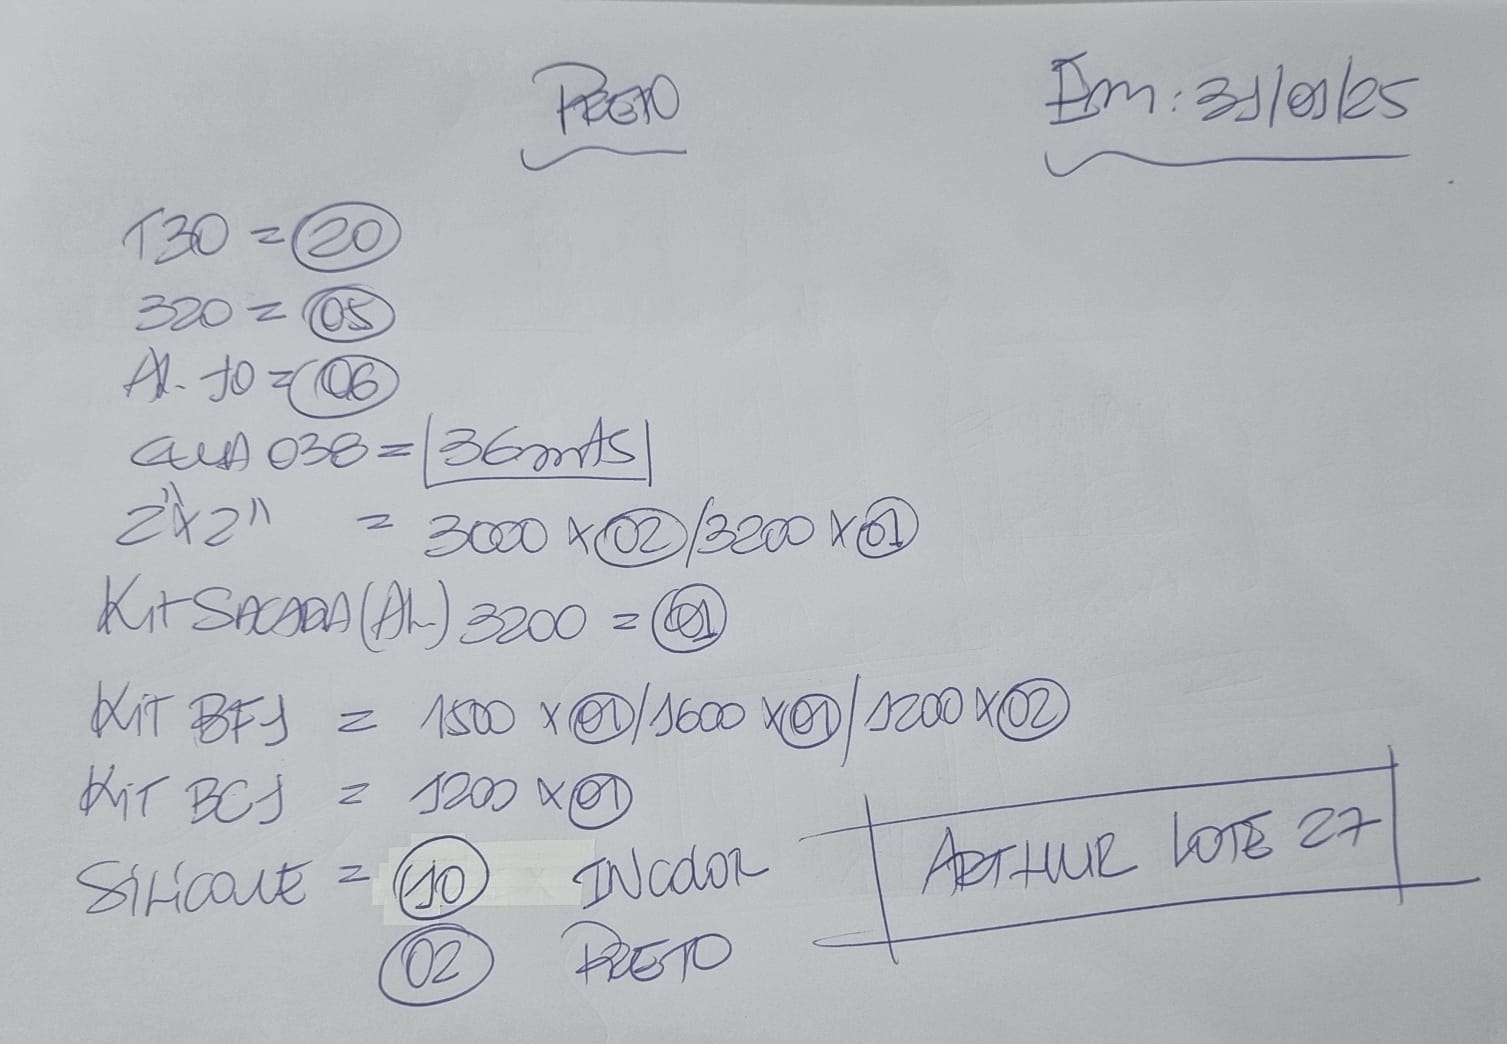 PRETO
Em: 31/01/25
T30 = 20
320 = 05
Al. 10 = 06
GUIA 038 = 36mts
2"x2" = 3000 x 02 / 3200 x 01
Kit SACADA (AL) 3200 = 01
KIT BF1 = 1500 x 01 / 1600 x 01 / 1200 x 02
KIT BC1 = 1200 x 01
SILICONE = 10 INCOLOR
02 PRETO
ARTHUR LOTE 27